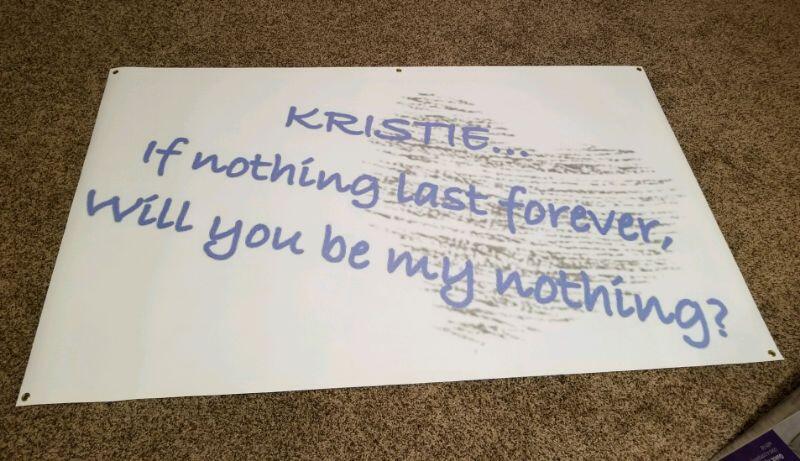 KRISTIE...
If nothing last forever,
Will you be my nothing?